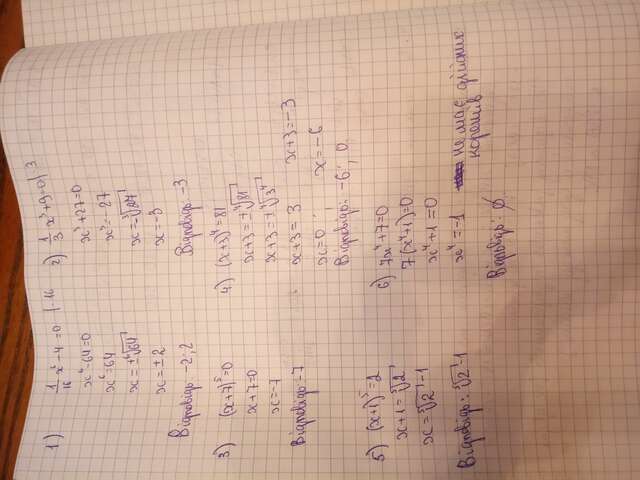 1) 1/16 x⁶-4=0 | ·16
x⁶-64=0
x⁶=64
x=±⁶√64
x=±2
Відповідь -2; 2
2) 1/3 x³+9=0 | 3
x³+27=0
x³=-27
x=³√-27
x=-3
Відповідь -3
3) (x+7)⁵=0
x+7=0
x=-7
Відповідь -7
4) (x+3)⁴=81
x+3=±⁴√81
x+3=±⁴√3⁴
x+3=3 x+3=-3
x=0 x=-6
Відповідь: -6; 0
5) (x+1)⁵=2
x+1=⁵√2
x=⁵√2-1
Відповідь: ⁵√2-1
6) 7x⁴+7=0
7(x⁴+1)=0
x⁴+1=0
x⁴=-1 не має дійсних
коренів
Відповідь: ∅